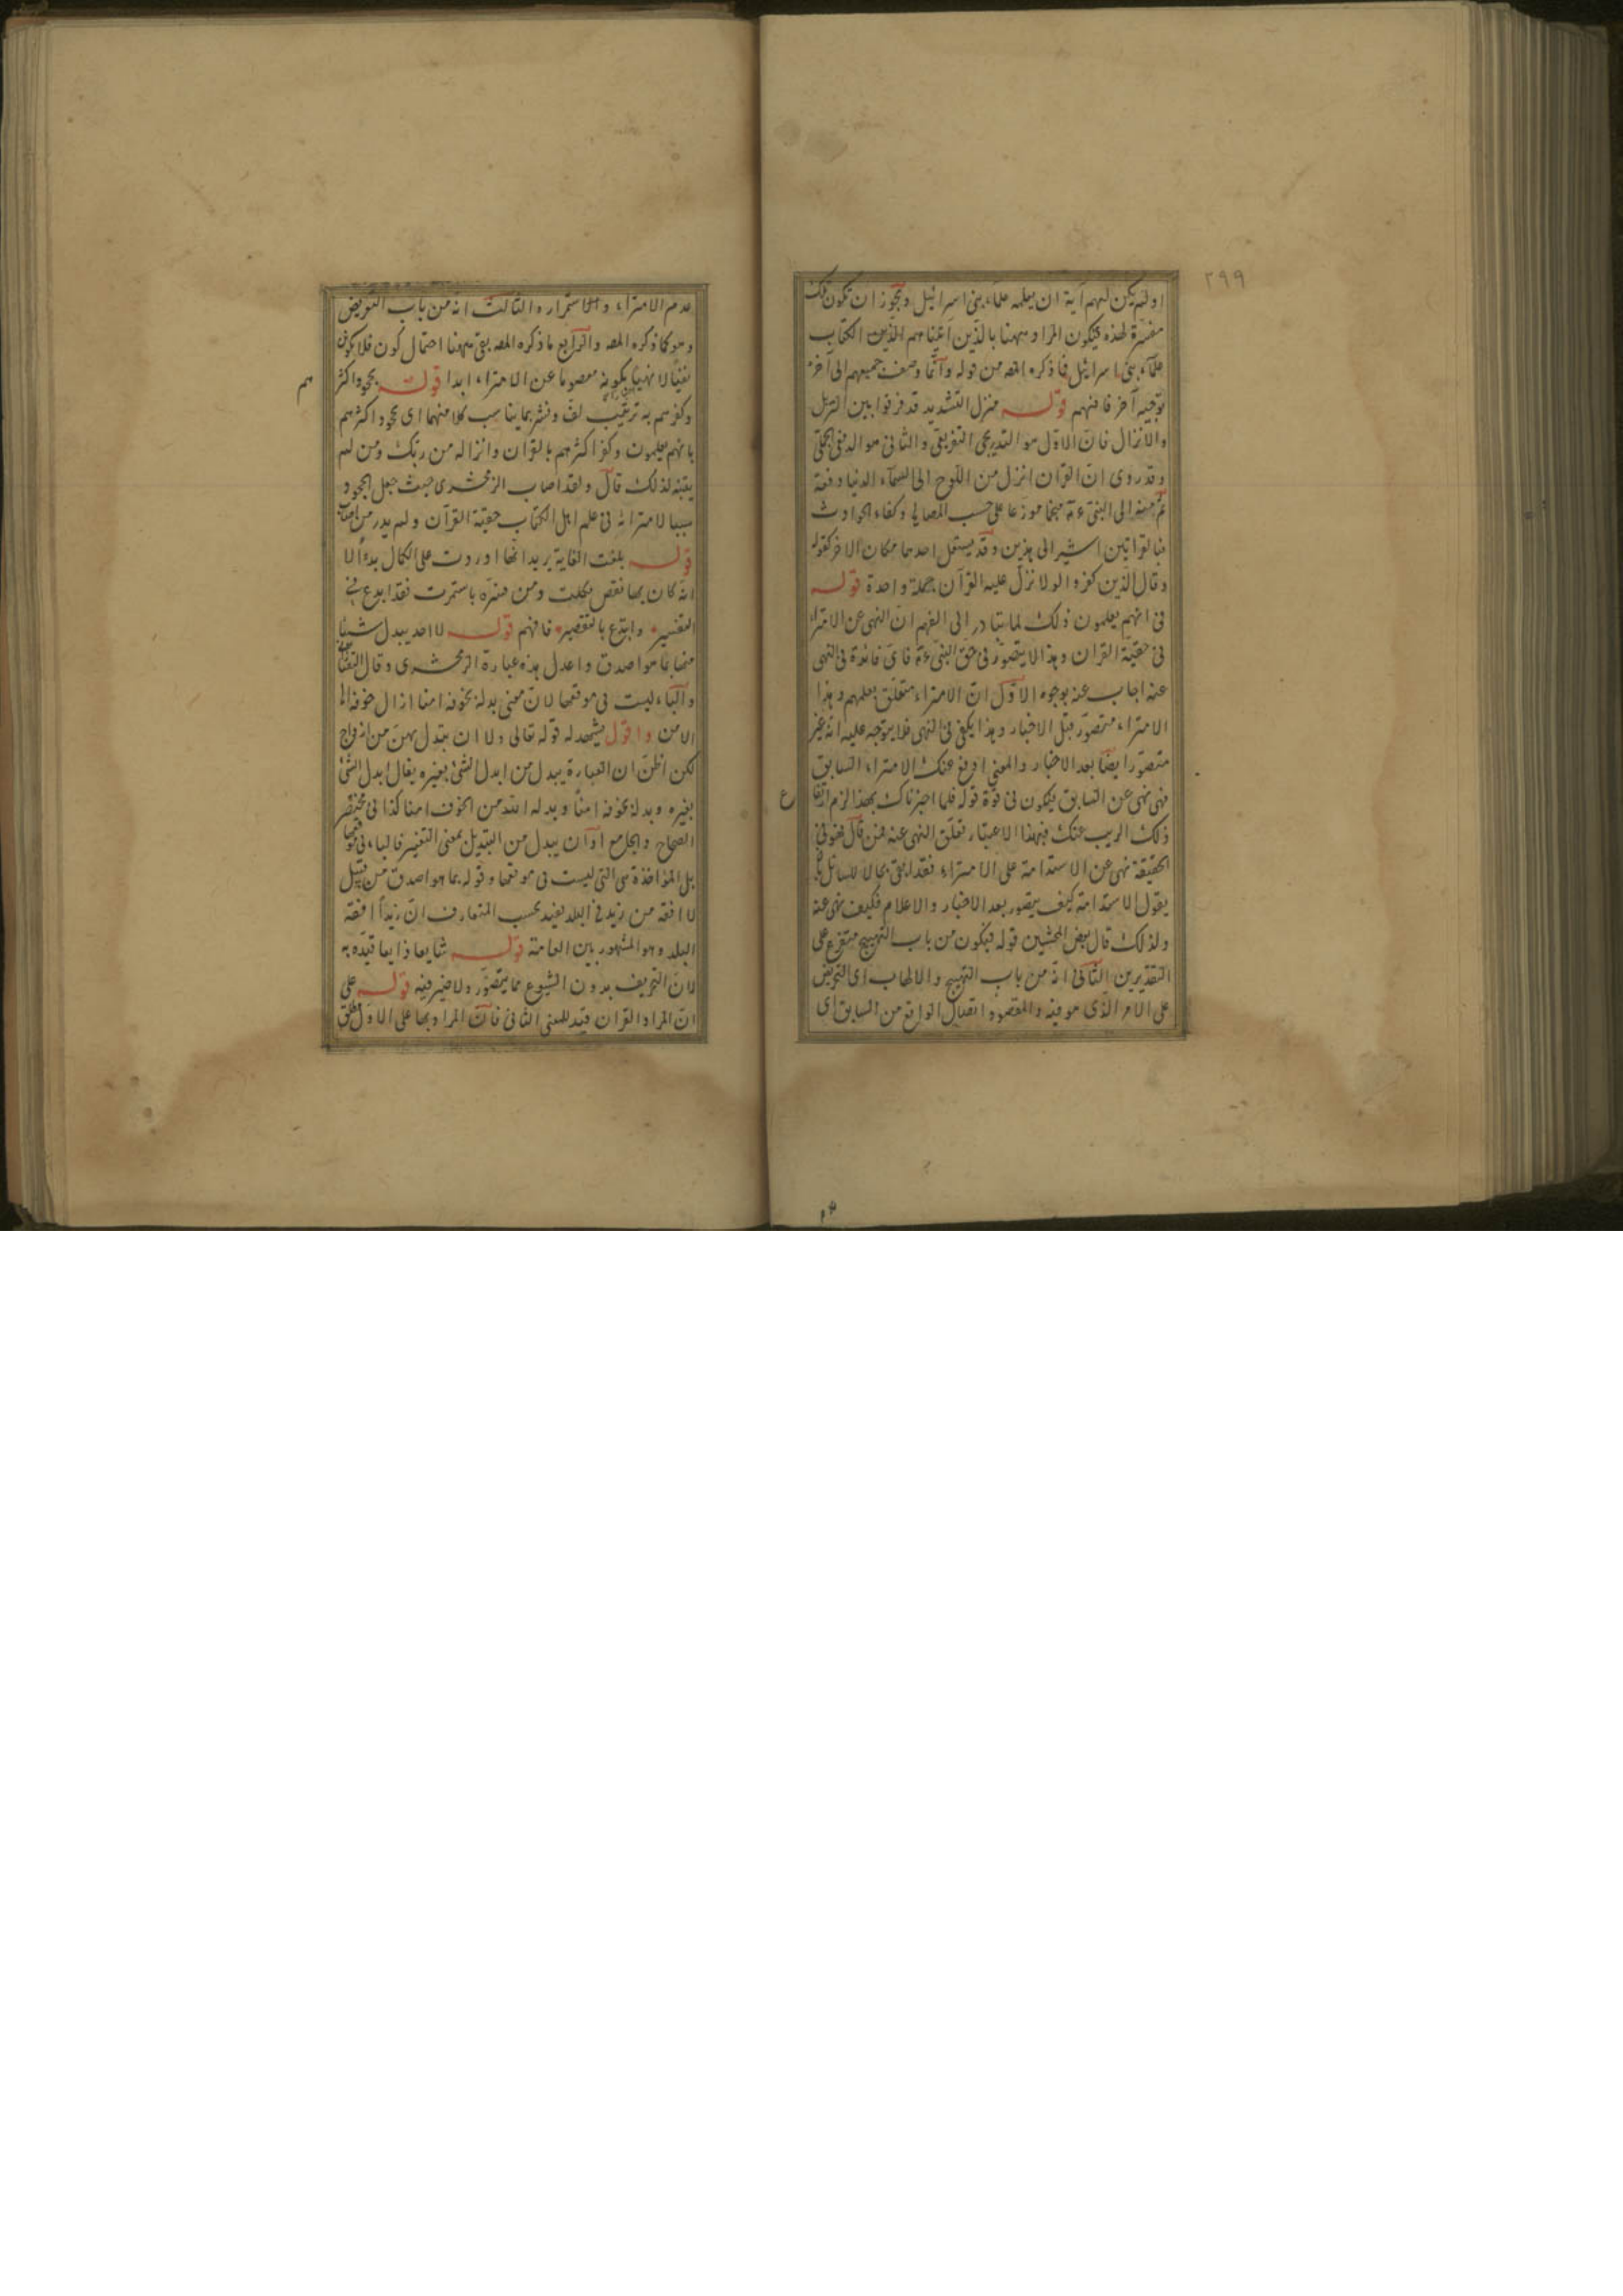 ٢٩٩
او لم يكن لهم آية ان يعلمه علماء بنى اسرائيل ويجوز ان تكون تلك
مفسرة لهذه فيكون المراد ههنا بالذين آتيناهم الذين الكتاب
علماء بنى اسرائيل فما ذكره المصه من قوله وانما وصف جميعهم الى آخره
توجيه آخر فافهم قوله منزل التشديد قد فرقوا بين التنزيل
والانزال فان الاول هو التدريجى التفريقى والثانى هو الدفعى الجملى
وقد روى ان القرآن انزل من اللوح الى السماء الدنيا دفعة
ثم منه الى النبى عم منجما موزعا على حسب المصالح وكفاء الحوادث
فبالقرائتين اشير الى هذين وقد يستعمل احدهما مكان الآخر كقوله
وقال الذين كفروا لولا نزل عليه القرآن جملة واحدة قوله
فى انهم يعلمون ذلك لما يتبادر الى الفهم ان النهى عن الامتراء
فى حقية القرآن وهذا لا يتصور فى حق النبى عم فاى فائدة فى النهى
عنه اجاب عنه بوجوه الاول ان الامتراء متعلق بعلمهم وهذا
الامتراء متصور قبل الاخبار وهذا يكفى فى النهى فلا يتوجه عليه انه غير
متصور ايضا بعد الاخبار والمعنى ارفع عنك الامتراء السابق
فهى نهى عن السابق فيكون فى قوة قوله فلما اخبرناك بهذا لزم ارتفا
ع
ذلك الريب عنك فبهذا الاعتبار تعلق النهى عنه فمن قال هو فى
الحقيقة نهى عن الاستدامة على الامتراء فقد ابقى مجالا للسائل بان
يقول الاستدامة كيف يتصور بعد الاخبار والاعلام فكيف نهى عنه
ولذلك قال بعض المحشين قوله فيكون من باب التهييج متفرع على
التقديرين الثانى انه من باب التهييج والالهاب اى التحريض
على الامر الذى هو فيه والمقصود اتصال الواقع من السابق اى
عدم الامتراء والاستمرار والثالث انه من باب التعريض
وهو كما ذكره المصه والرابع ما ذكره المصه بقى ههنا احتمال كون فلا تكونن
نفيا لا نهيا بكونه معصوما عن الامتراء ابدا قوله بجحود اكثر
هم
وكفرهم به ترتيب لف ونشر بما يناسب كلا منهما اى بجحود اكثرهم
بانهم يعلمون وكفر اكثرهم بالقرآن وانزاله من ربك ومن لم
يتنبه لذلك قال ولقد اصاب الزمخشرى حيث جعل الجحود
سببا لامترائه فى علم اهل الكتاب حقية القرآن ولم يدر من اصاب
قوله بلغت الغاية يريد انها وردت على الكمال بدءا لا
انه كان بها نقص فكملت ومن فسره باستمرت فقد ابدع فى
التفسير وابتدع بالتقصير فافهم قوله لا احد يبدل شيئا
منها بما هو اصدق واعدل هذه عبارة الزمخشرى وقال التفتا
والباء ليست فى موقعها لان معنى بدله بخوفه امنا ازال خوفه الى
الامن واقول يشهد له قوله تعالى ولا ان تبدل بهن من ازواج
لكن اظن ان العبارة يبدل من ابدل الشئ بغيره يقال ابدل الشئ
بغيره وبدله بخوفه امنا وبدله الله من الخوف امنا كذا فى مختصر
الصحاح والجامع او ان يبدل من التبديل بمعنى التغيير فالباء فى موقعها
بل المؤاخذة هى التى ليست فى موقعها وقوله بما هو اصدق من قبيل
لا افقه من زيد فى البلد يفيد بحسب المتعارف ان زيدا افقه
البلد وهو المشهور بين العامة قوله شايعا ذايعا قيده به
لان التحريف بدون الشيوع مما يتصور ولا ضير فيه قوله على
ان المراد القرآن قيد للمعنى الثانى فان المراد بها على الاول مطلق